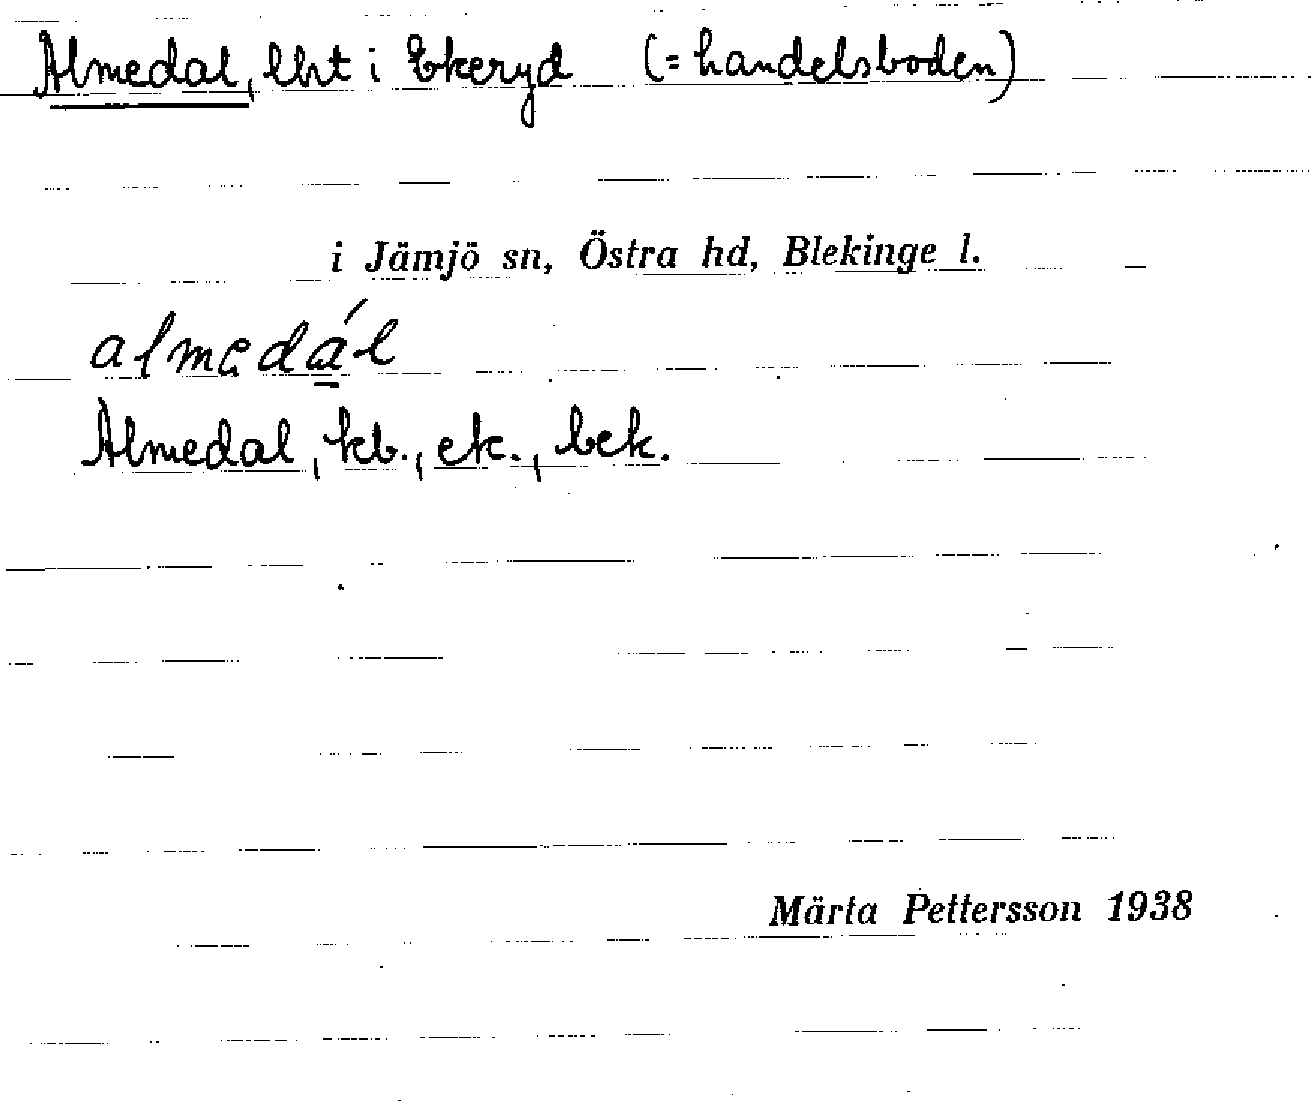 Almedal, lht i Ekeryd (= handelsboden)
i Jämjö sn, Östra hd, Blekinge l.
almedál
Almedal, kb., ek., bek.
Märta Pettersson 1938